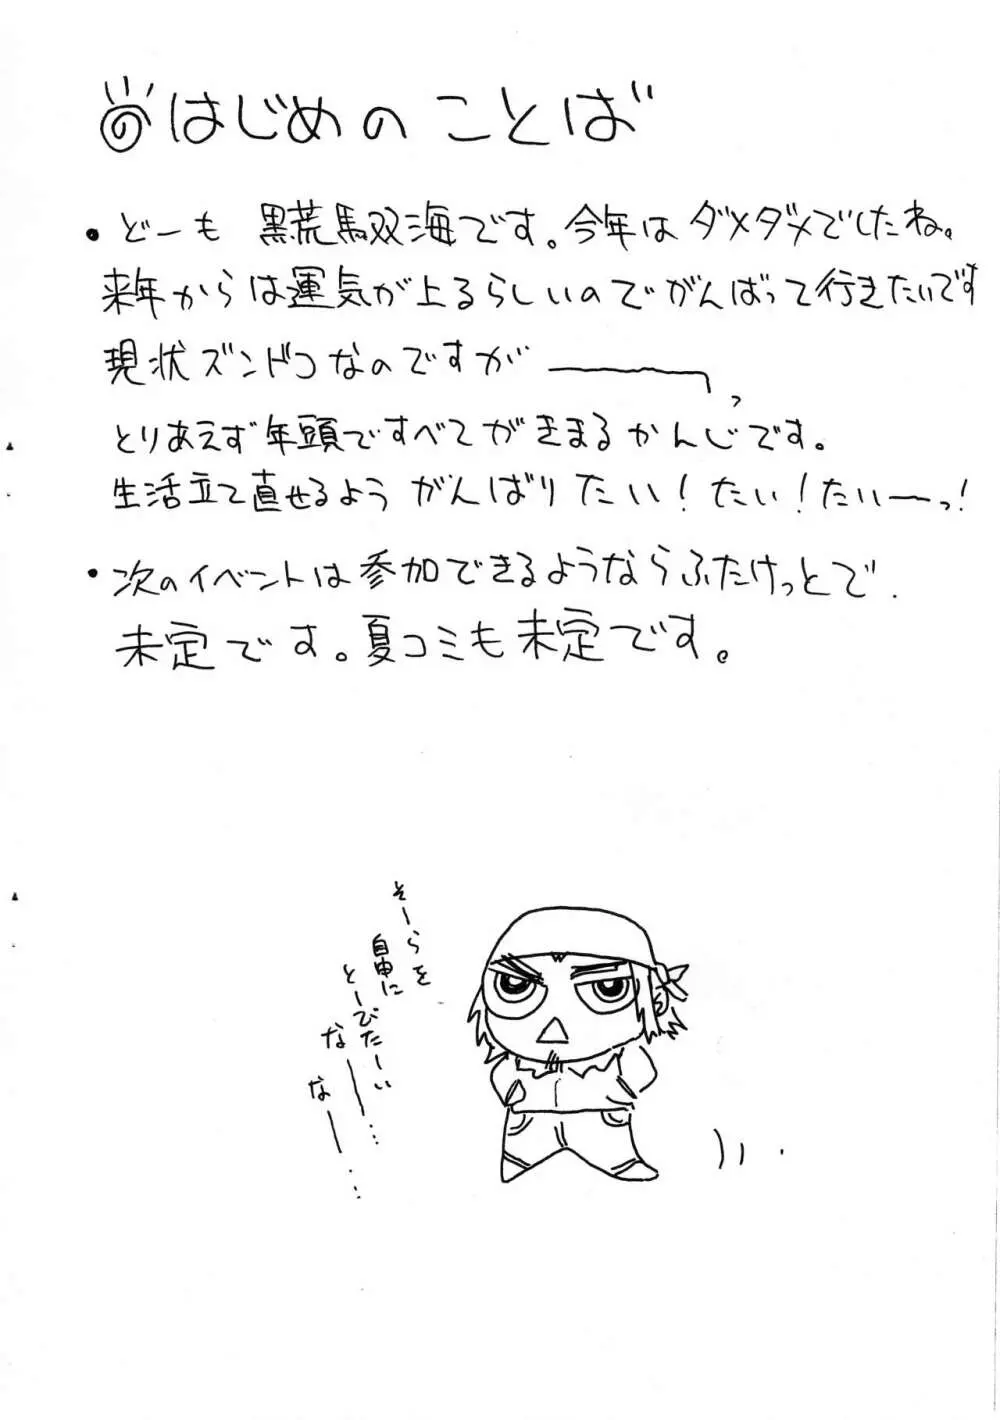 はじめのことば
・どーも 黒荒馬双海です。今年はダメダメでしたね。
来年からは運気が上るらしいのでがんばって行きたいです
現状ズンドコなのですが ーーーっ
とりあえず年頭ですべてがきまるかんじです。
生活立て直せるよう がんばりたい!たい!たいーっ!
・次のイベントは参加できるようならふたけっとで.
未定です。夏コミも未定です。
そーらを
自由に
とーびたーい
なー…
なー…